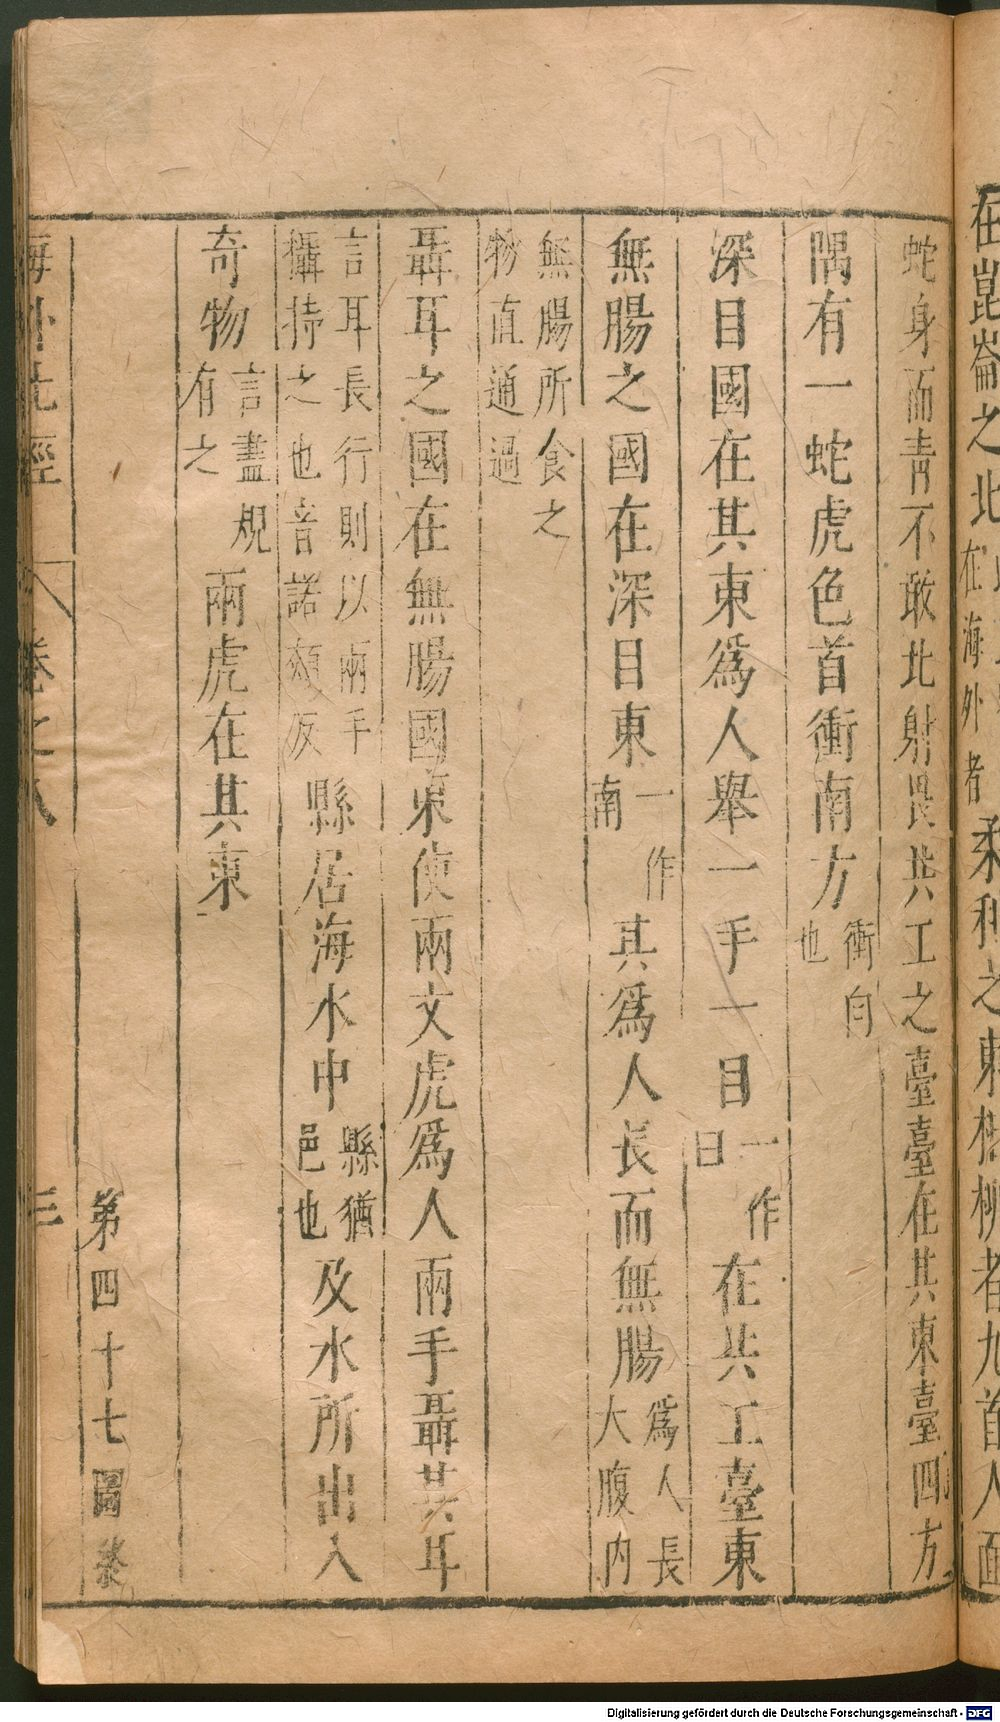 在崑崙之北在海外者柔利之東相柳者九首人面
蛇身而青不敢北射畏共工之臺臺在其東臺四方
隅有一蛇虎色首衝南方衝向也
深目國在其東爲人舉一手一目一作曰在共工臺東
無腸之國在深目東一作南其爲人長而無腸爲人長大腹内
無腸所食之物直通過
聶耳之國在無腸國東使兩文虎爲人兩手聶其耳
言耳長行則以兩手攝持之也音諾頰反縣居海水中縣猶邑也及水所出入
奇物言盡規有之兩虎在其東
第四十七圖
海外北經 卷之八 三
Digitalisierung gefördert durch die Deutsche Forschungsgemeinschaft - DFG